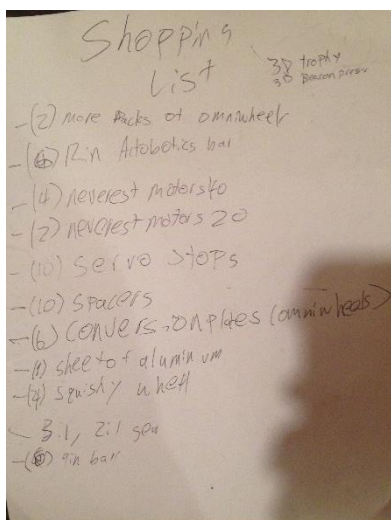 Shopping
List
3D trophy
3D Beacon
-(2) more Packs of omniwheel
-(6) in Actobotics bar
-(4) neverest motors 40
-(2) neverest motors 20
-(10) servo stops
-(10) spacers
-(6) conversion plates (omniwheels)
-(1) sheet of aluminum
-(4) squishy wheel
- 3:1, 2:1 gear
- 9in bar